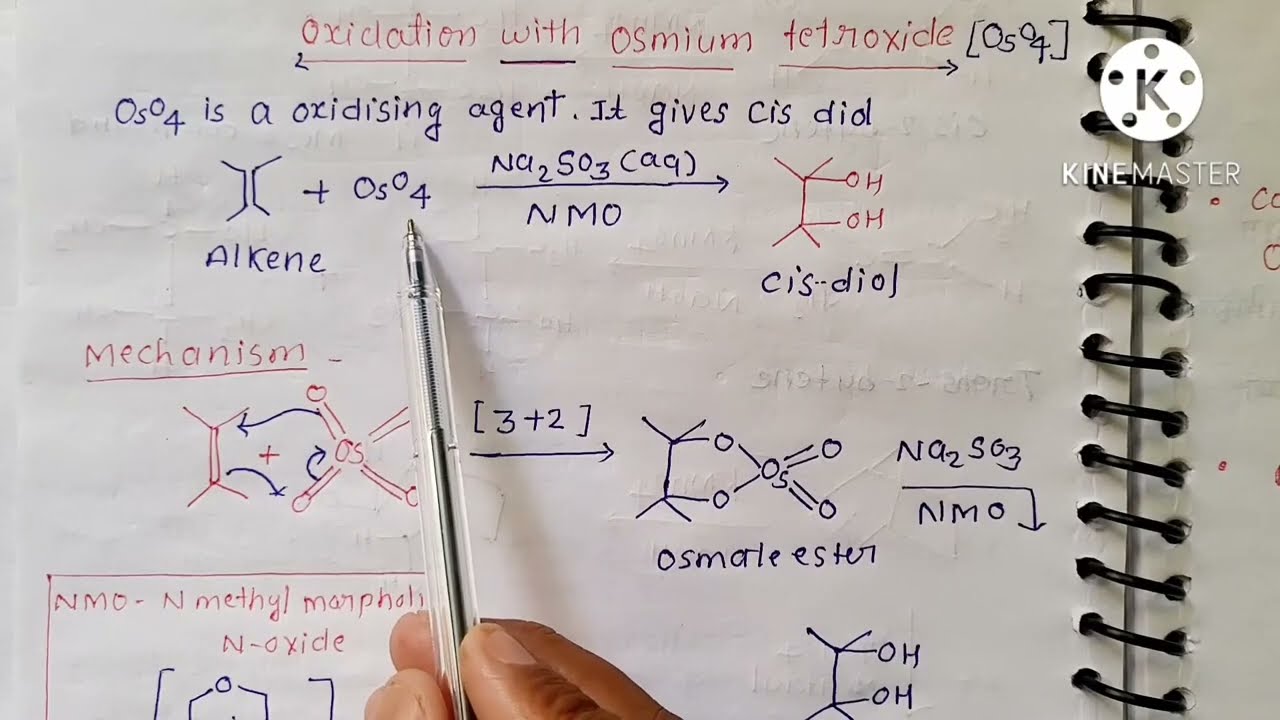 Oxidation with Osmium tetroxide [OsO4]
OsO4 is a oxidising agent. It gives Cis diol
+ OsO4 Na2SO3(aq) NMO OH OH
Alkene
Cis-diol
Mechanism -
O + Os O O [3+2] O O Os O O Na2SO3 NMO
Osmate ester
NMO - N methyl morpholi
N-oxide
O
OH
OH
K
KINEMASTER